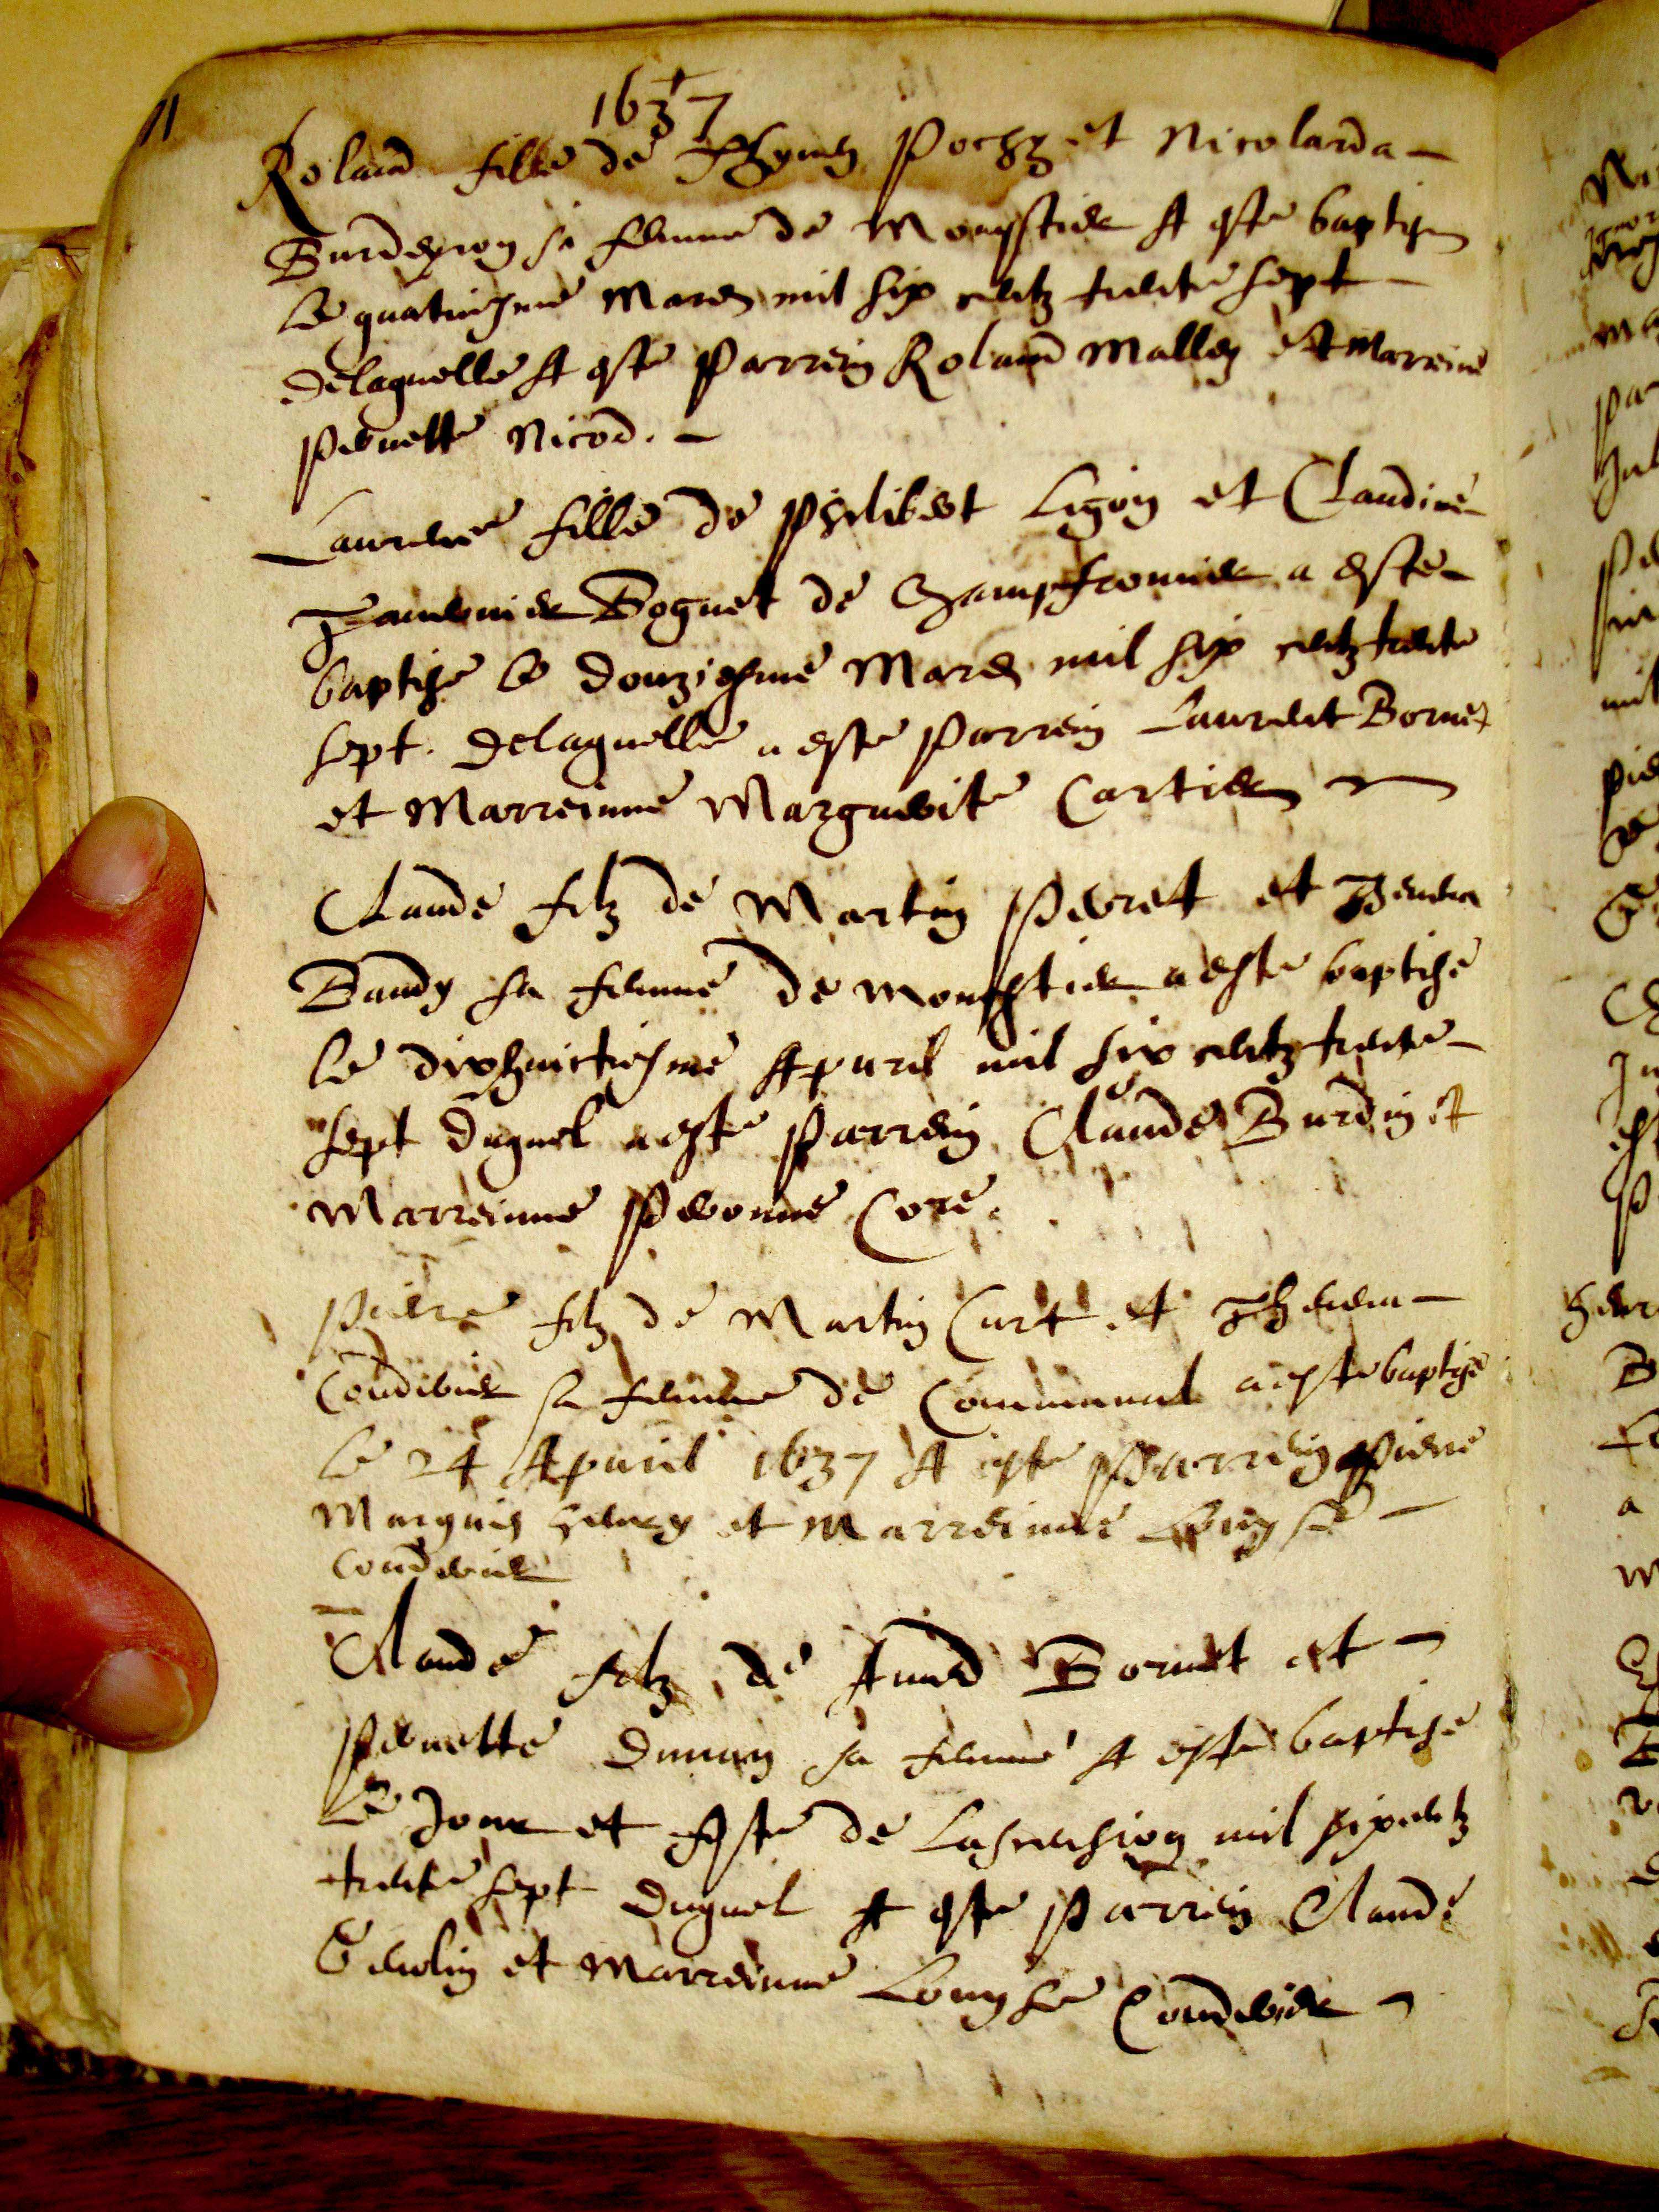 11
1637
Roland fille de Pochz et Nicolarda
sa femme de Monestier A este baptise
le quatriesme Mars mil six centz trente sept
De laquelle A este Parrein Roland Mallez et Marreine
Pernette Nicod.
Laurence fille de Philibert Ligon et Claudine
Boguet de Champfromier a este
baptise le douziesme Mars mil six centz trente
sept. De laquelle a este Parrein Laurent Bornet
et Marreinne Marguerite Cartier
Claude filz de Martin Perret et
Baudy sa femme de Monestier a este baptise
le dixhuictiesme Apvril mil six centz trente
sept Duquel a este Parrein Claude Burdin et
Marreinne Pernonne Coré.
Pierre filz de Martin Curt et Thevena
Coudurier sa femme de Communal a este baptisé
le 24 Apvril 1637 A este Parrein Pierre
Marquis et Marreinne Louyse
Coudurier
Claude filz de Aimé Bornet et
Pernette Ducray sa femme A este baptisé
le Jour et feste de Lascension mil six centz
trente sept Duquel A este Parrein Claude
et Marreinne Louyse Coudurier